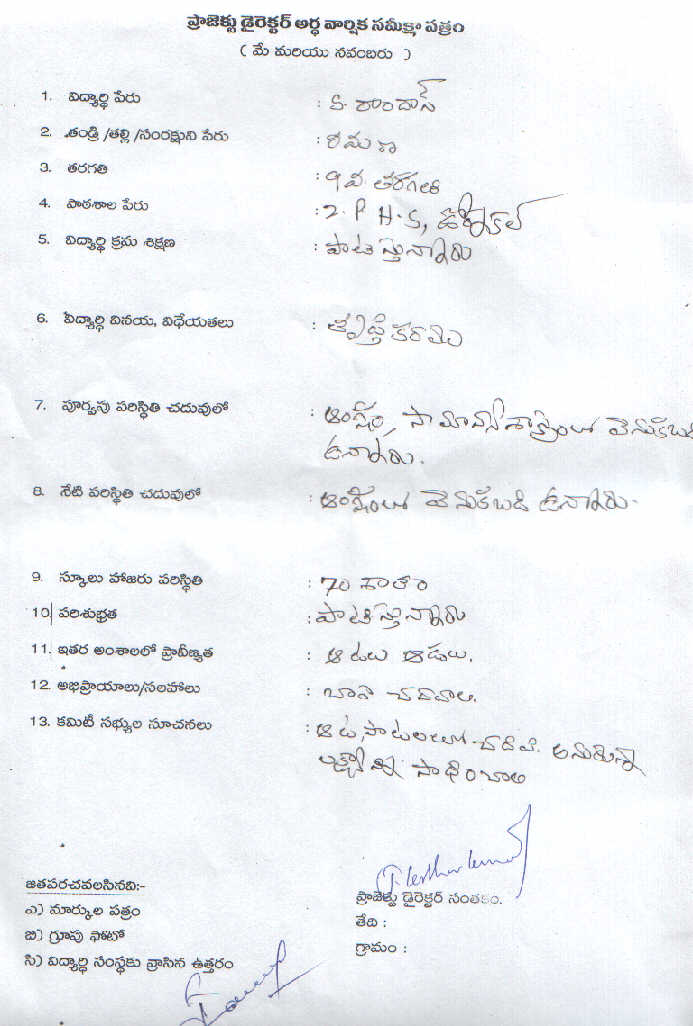 ప్రాజెక్టు డైరెక్టర్ అర్ధ వార్షిక సమీక్షా పత్రం
( మే మరియు నవంబరు )
1. విద్యార్థి పేరు : కె. రాందాస్
2. తండ్రి /తల్లి /సంరక్షుని పేరు :
3. తరగతి : 9 వ తరగతి
4. పాఠశాల పేరు : Z. P H.S,
5. విద్యార్థి క్రమ శిక్షణ : పాటిస్తున్నారు
6. విద్యార్థి వినయ, విధేయతలు : తృప్తికరము
7. పూర్వపు పరిస్థితి చదువులో : ఆంగ్లం, సామాన్యశాస్త్రంలో వెనుకబడి
ఉన్నారు.
8. నేటి పరిస్థితి చదువులో : ఆంగ్లంలో వెనుకబడి ఉన్నారు.
9. స్కూలు హాజరు పరిస్థితి : 70 శాతం
10. పరిశుభ్రత : పాటిస్తున్నారు
11. ఇతర అంశాలలో ప్రావీణ్యత : ఆటలు ఆడుట.
12. అభిప్రాయాలు/సలహాలు : బాగా చదవాలి.
13. కమిటీ సభ్యుల సూచనలు : ఆట,పాటలలో చదివి. అనుకున్న
లక్ష్యాన్ని సాధించాలి
జతపరచవలసినవి:-
ఎ) మార్కుల పత్రం
బి) గ్రూపు ఫోటో
సి) విద్యార్థి సంస్థకు వ్రాసిన ఉత్తరం
ప్రాజెక్టు డైరెక్టర్ సంతకం.
తేది :
గ్రామం :